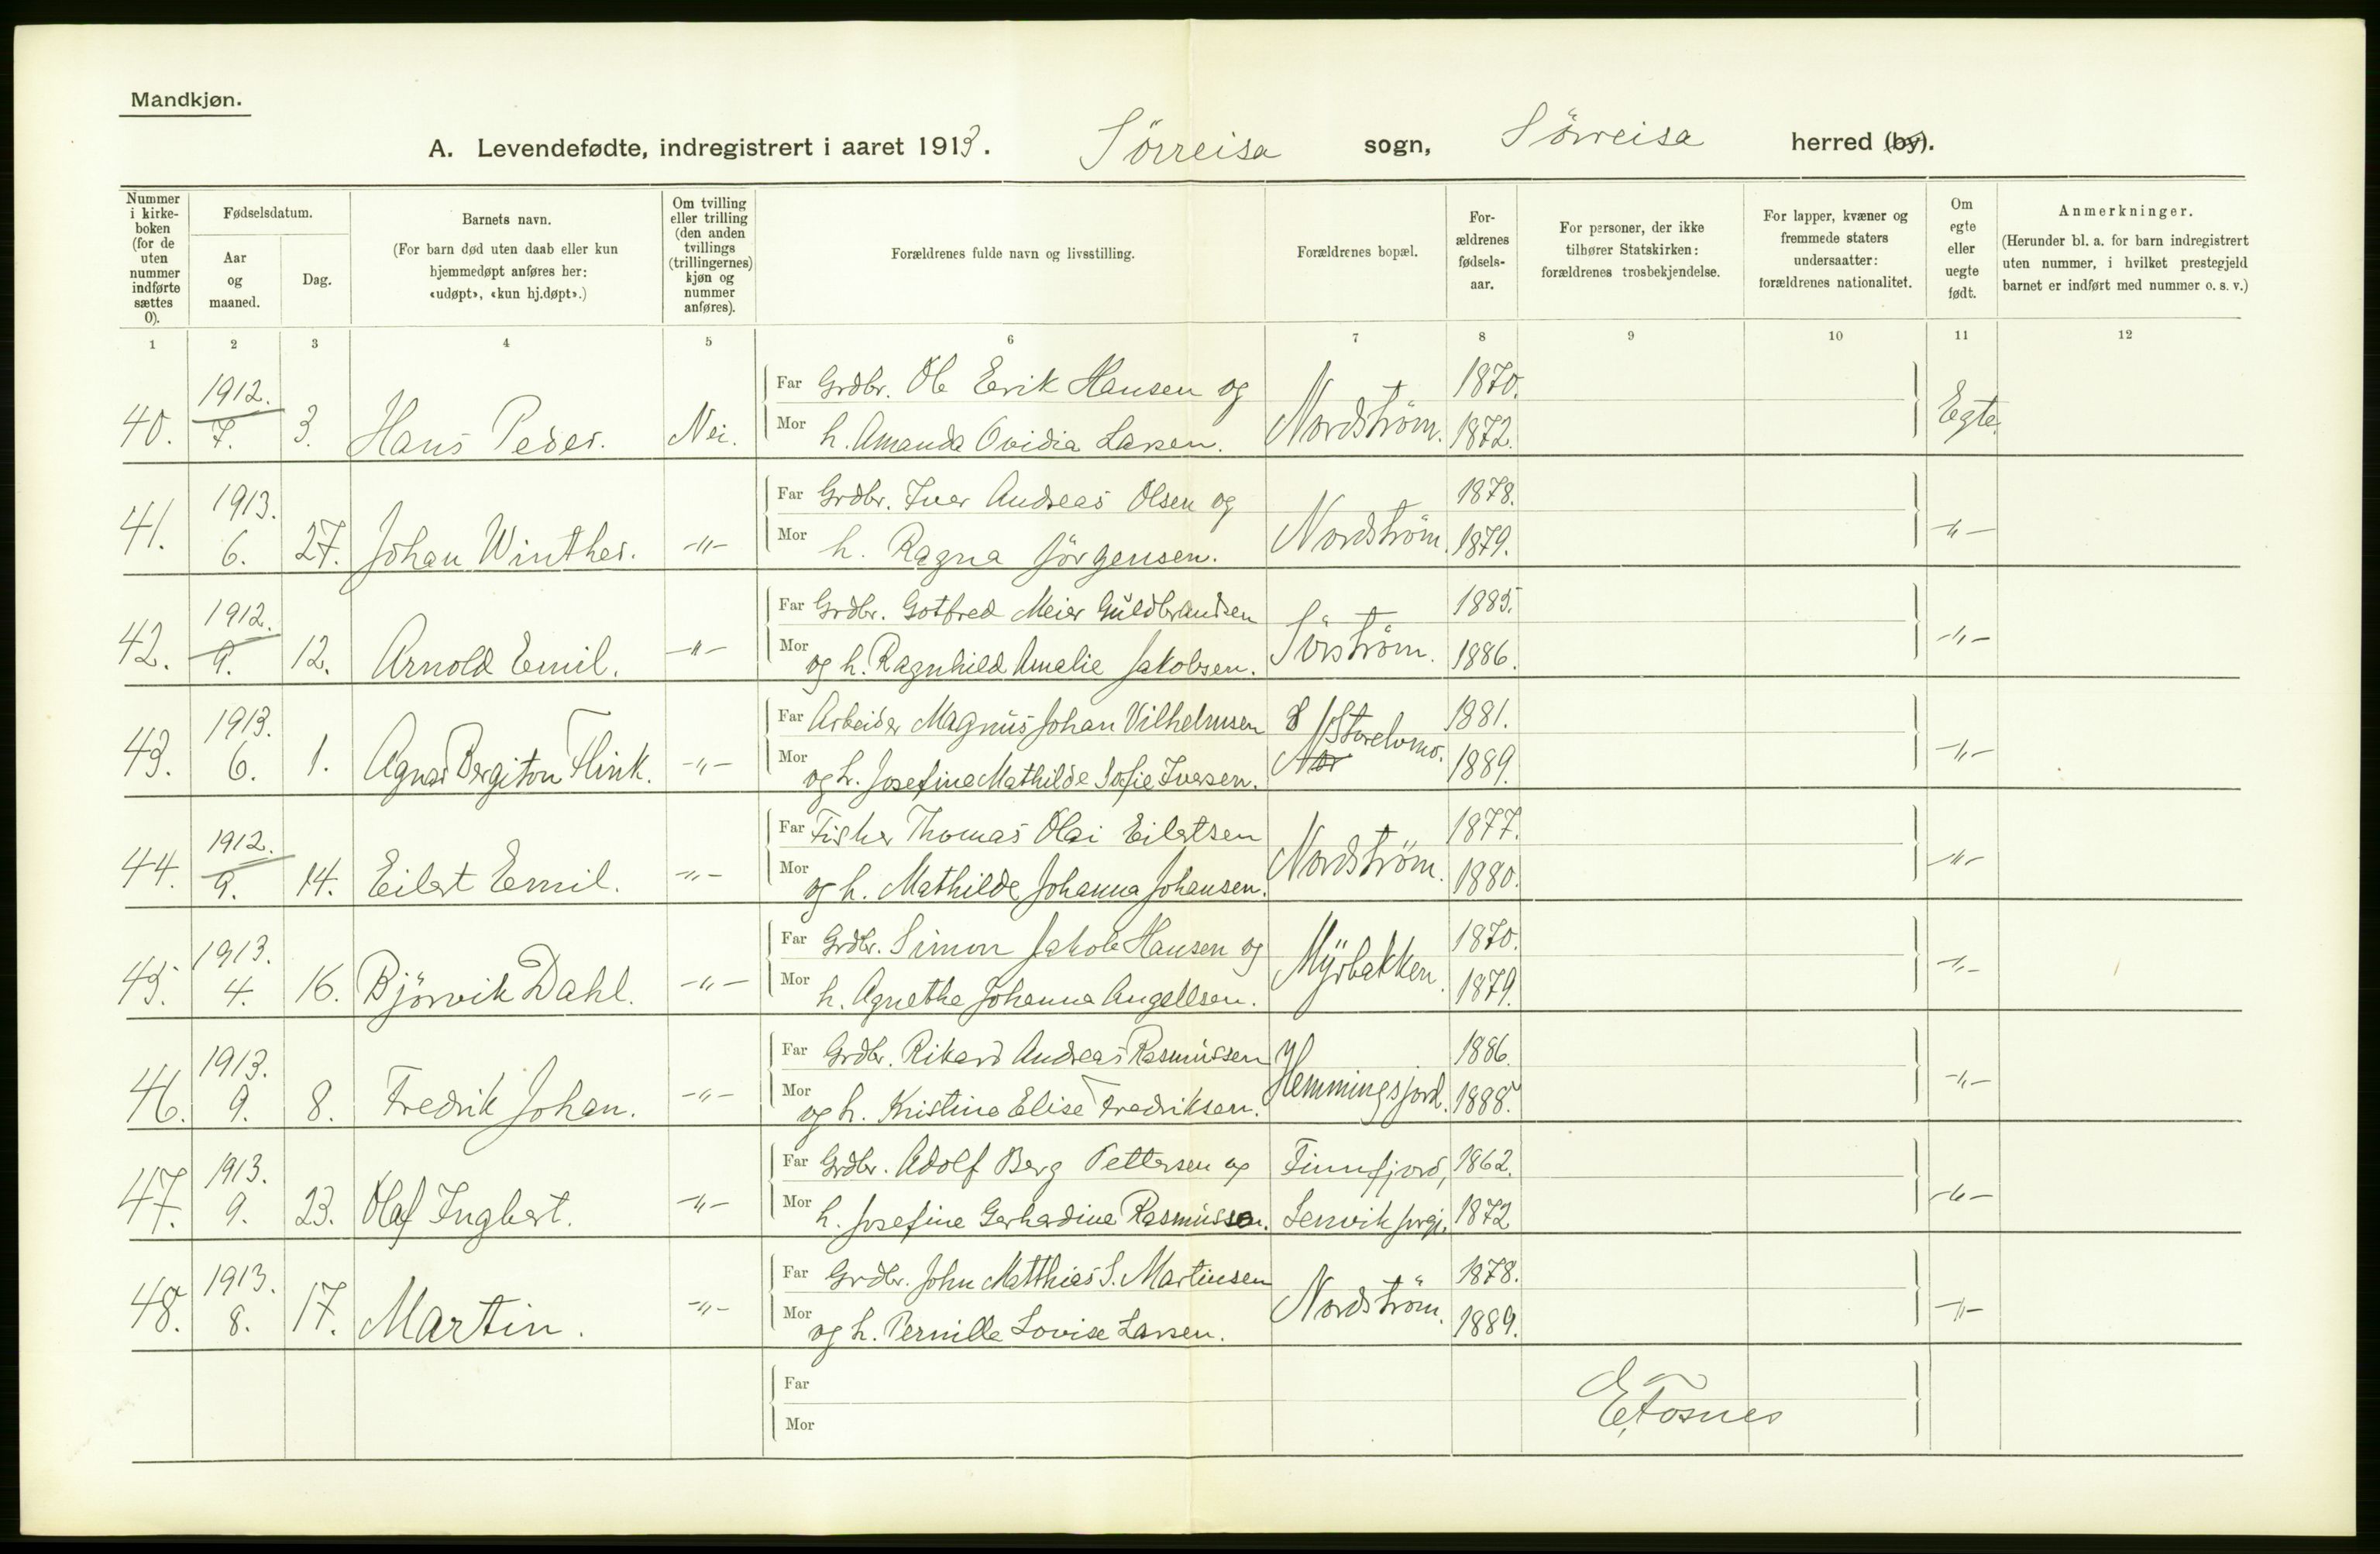 Mandkjøn.
A. Levendefødte, indregistrert i aaret 1913. Sörreisa sogn, Sörreisa herred (by).
Nummer i kirke-boken (for de uten nummer indførte sættes 0).
Fødselsdatum.
Aar og maaned.
Dag.
Barnets navn.
(For barn død uten daab eller kun hjemmedøpt anføres her: «udøpt», «kun hj.døpt».)
Om tvilling eller trilling (den anden tvillings (trillingernes) kjøn og nummer anføres).
Forældrenes fulde navn og livsstilling.
Forældrenes bopæl.
For-ældrenes fødsels-aar.
For personer, der ikke tilhører Statskirken: forældrenes trosbekjendelse.
For lapper, kvæner og fremmede staters undersaatter: forældrenes nationalitet.
Om egte eller uegte født.
Anmerkninger.
(Herunder bl. a. for barn indregistrert uten nummer, i hvilket prestegjeld barnet er indført med nummer o. s. v.)
1 2 3 4 5 6 7 8 9 10 11 12
40. 1912. 7. 3. Hans Peder. Nei. Far Grdbr. Ole Erik Hansen og Nordström. 1870. Egte.
Mor h. Amanda Ovidia Larsen. 1872.
41. 1913. 6. 27. Johan Winther. -"- Far Grdbr. Iver Andreas Olsen og Nordström. 1878. -"-
Mor h. Ragna Jörgensen. 1879.
42. 1912. 9. 12. Arnold Emil. -"- Far Grdbr. Gotfred Meier Guldbrandsen Sörström. 1885. -"-
Mor og h. Ragnhild Amalie Jakobsen. 1886.
43. 1913. 6. 1. Agnar Bergiton Flink. -"- Far Arbeider Magnus Johan Vilhelmsen Storelvmo. 1881. -"-
Mor og h. Josefine Mathilde Sofie Iversen. Nor 1889.
44. 1912. 9. 14. Eilert Emil. -"- Far Fisker Thomas Olai Eilertsen Nordström. 1877. -"-
Mor og h. Mathilde Johanna Johansen. 1880.
45. 1913. 4. 16. Björvik Dahl. -"- Far Grdbr. Simon Jakob Hansen og Myrbakken. 1870. -"-
Mor h. Agnethe Johanna Angellsen. 1879.
46. 1913. 9. 8. Fredrik Johan. -"- Far Grdbr. Rikard Andreas Rasmussen Hemmingsjord. 1886. -"-
Mor og h. Kristine Elise Fredriksen. 1888.
47. 1913. 9. 23. Olaf Ingbert. -"- Far Grdbr. Adolf Berg Pettersen og Finnfjord, 1862. -"-
Mor h. Josefine Gerhardine Rasmussen. Lenvik prgj. 1872
48. 1913. 8. 17. Martin. -"- Far Grdbr. John Matthias S. Martinsen Nordström. 1878. -"-
Mor og h. Pernille Lovise Larsen. 1889.
Far
Mor
E. Fosnes